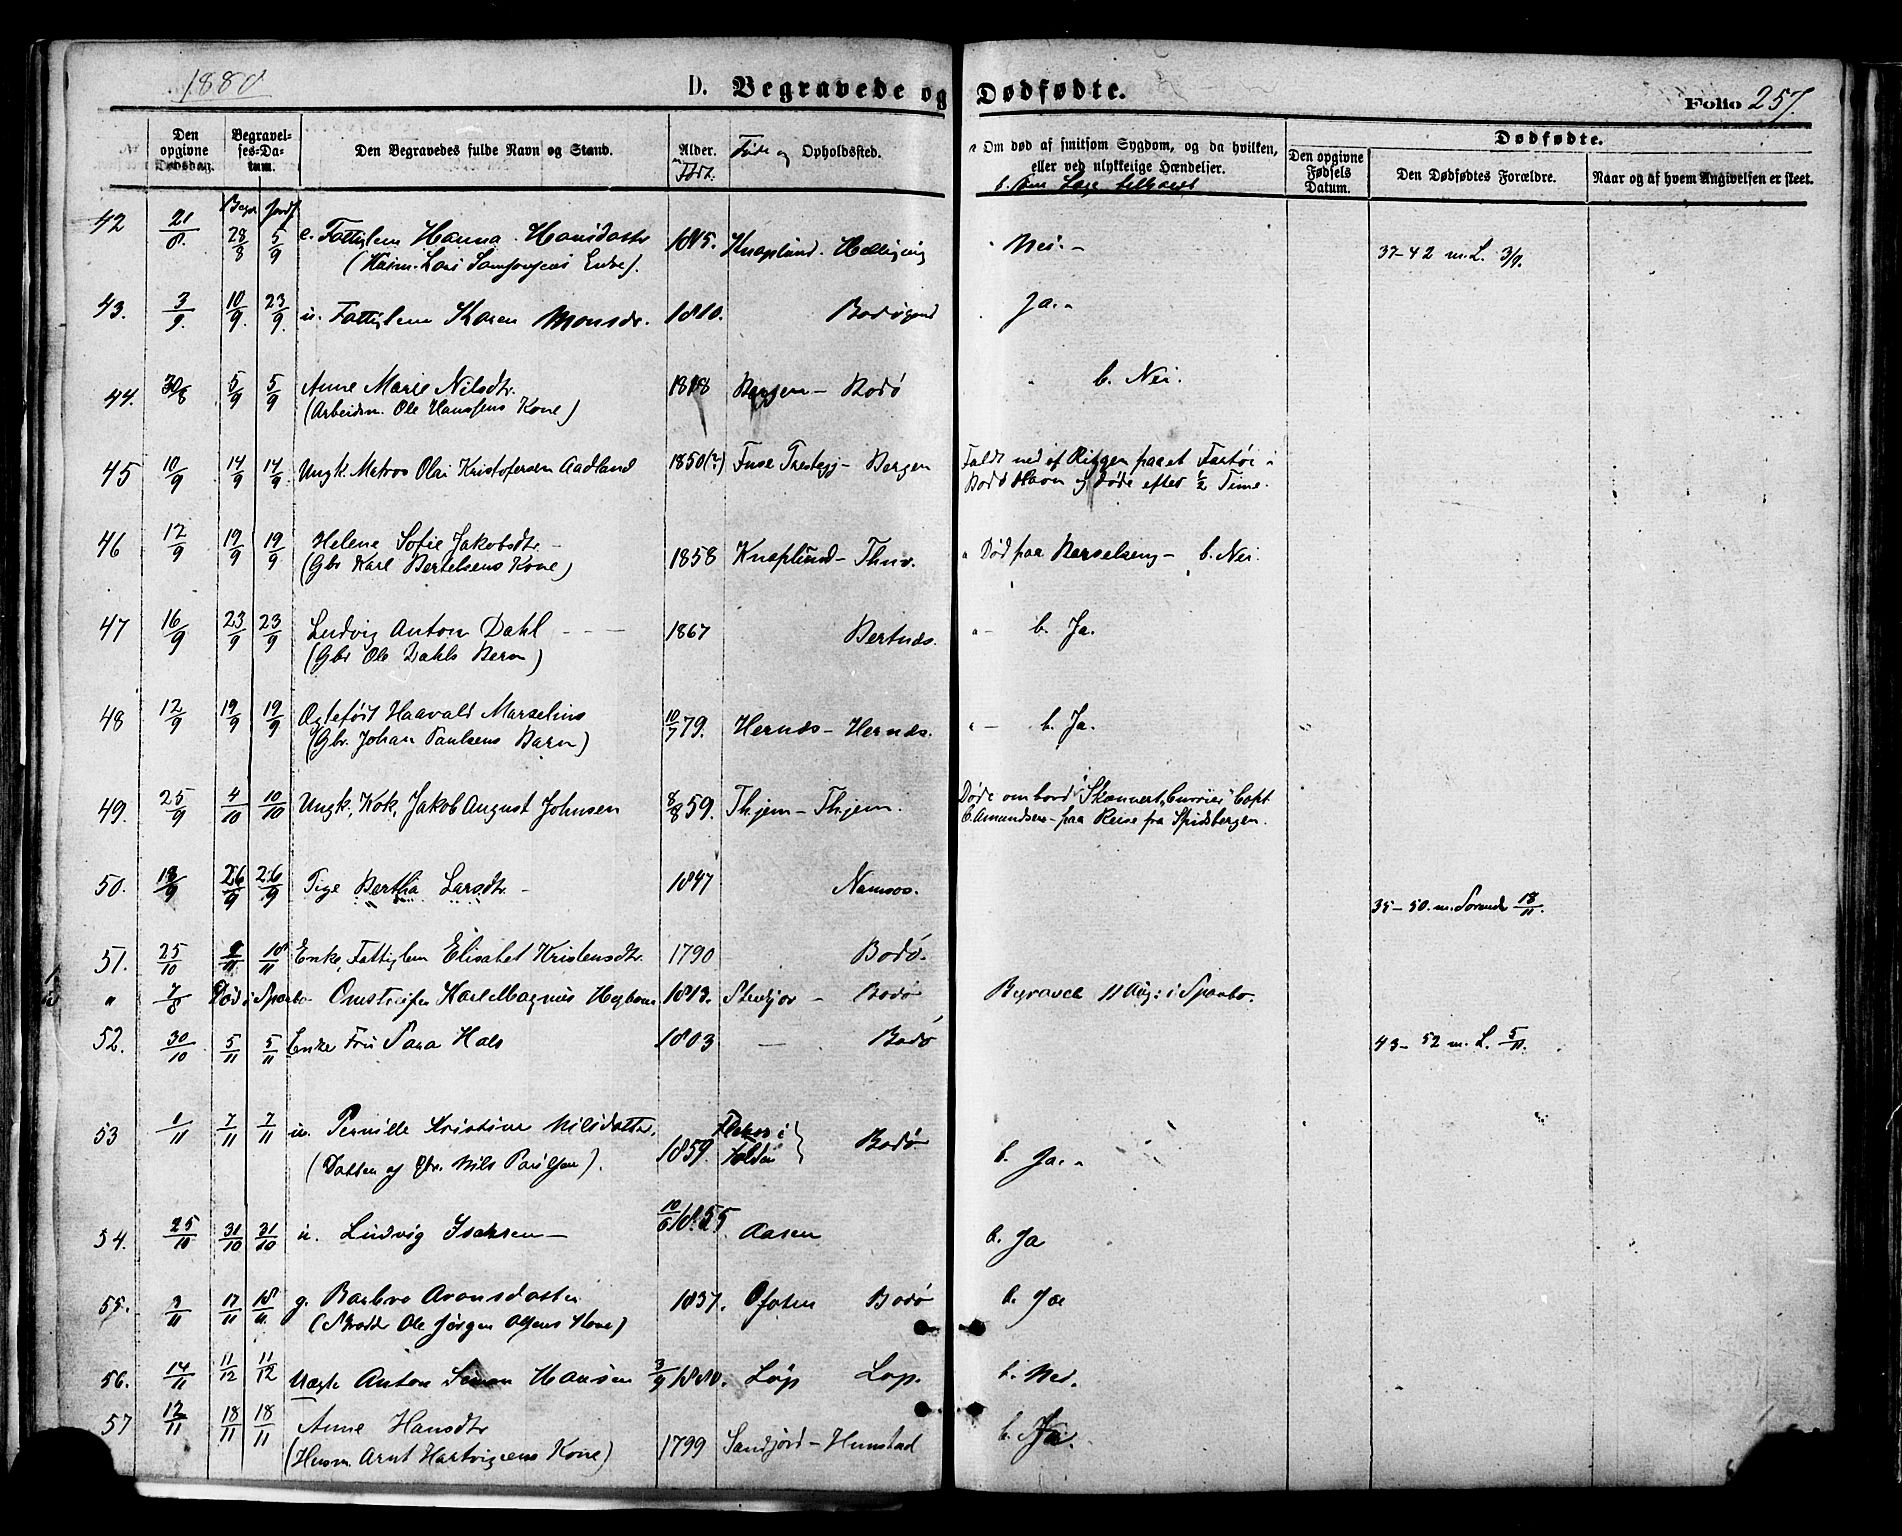 1880
D. Begravede og Dødfødte.
Folio 257.
Den opgivne Dødsdag.
Begravelses-Datum.
Den Begravedes fulde Navn og Stand.
Alder. Født.
Føde og Opholdssted.
Om død af smitsom Sygdom, og da hvilken, eller ved ulykkelige Hændelser.
b. Om Læge tilkaldt
Den opgivne Fødsels Datum.
Dødfødte.
Den Dødfødtes Forældre.
Naar og af hvem Angivelsen er skeet.
Begr. Jordf.
42 21/8. 28/8 5/9 e. Fattiglem Hanna Hansdatter 1815. Knaplund. Nei.- 37-42 m. L. 3/9.
(Husm. Lars Enke).
43. 3/9. 10/9. 23/9. u. Fattiglem Karen Monsdr. 1810. Bodøgaard Ja.-
44. 30/8 5/9 5/9 Anne Marie Nilsdtr. 1818 Bergen - Bodø b. Nei.
(Arbeidsm. Ole Hanssens Kone)
45 10/9 14/9 14/9 Ungk. Matros Olai Kristofersen Aadland 1850(?) Fuse Prestegj - Bergen Faldt ned af Riggen paa et Fartøi i
Bodø Havn og døde efter 1/2 Time.
46 12/9 19/9 19/9 Helene Sofie Jakobsdtr. - 1858 Knaplund - Thuv. Død paa Barselseng - b. Nei.
(Gbr Karl Bertelsens Kone)
47 16/9 23/9 23/9 Ludvig Anton Dahl - - - 1867 Bertnes. - b. Ja.
(Gbr Ole Dahls Barn)
48 12/9 19/9 19/9 Ægtefødt Haavald Marselius 10/7 79. Hernes - Hernes. - b. Ja.
(Gbr. Johan Paulsens Barn)
49. 25/9 4/10 10/10 Ungk. Kok, Jakob August Johnsen 8/8 59. Thjem - Thjem. Døde ombord i Skonnert Capt
Amundsen - paa Reise fra Spidsbergen.
50. 18/9 26/9 26/9 Pige Bertha Larsdtr. - 1847 Namsos. 35-50. m. 18/11.
51. 25/10 9/11 10/11 Enke, Fattiglem Elisabet Kristensdtr. 1790 Bodø.
" 7/8 Død i Sparbo Omstreifer Karl Magnus 1813. Stenkjær - Bodø Begravet 11 Aug: i Sparbo.
52. 30/10 5/11 5/11 Enke Fru Sara Hals 1803 - Bodø 43-52 m. L. 5/11.
53 1/11 7/11 7/11 u. Pernille Kristine Nilsdatter. 1859. Bodø b. Ja.-
(Datter af Gbr. Nils Paulsen).
54. 25/10 31/10 31/10 u. Ludvig Isaksen - 10/6 1855. Aasen b. Ja
55. 9/11 17/11 18/11. g. Barbro Aronsdatter 1837. Ofoten Bodø b. Ja
(Ole Jørgen Olsens Kone)
56. 14/11 11/12 11/12 Uægte Anton Simon Hansen 3/9 1880. Løp Løp. b. Nei.
57 12/11 18/11 18/11 Anne Hansdtr 1799 Sandjord - Hunstad b. Ja.
(Husm. Arnt Hartvigsens Kone)